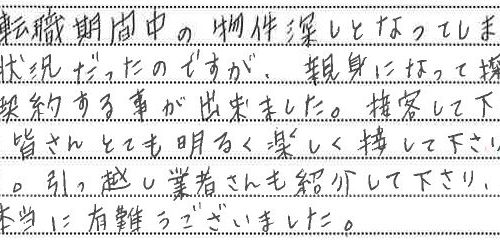 転職期間中の物件深しとなってしま
状況だったのですが、親身になって探
契約する事が出来ました。接客して下
皆さんとても明るく楽しく接して下さり
。引っ越し業者さんも紹介して下さり、
本当に有難うございました。